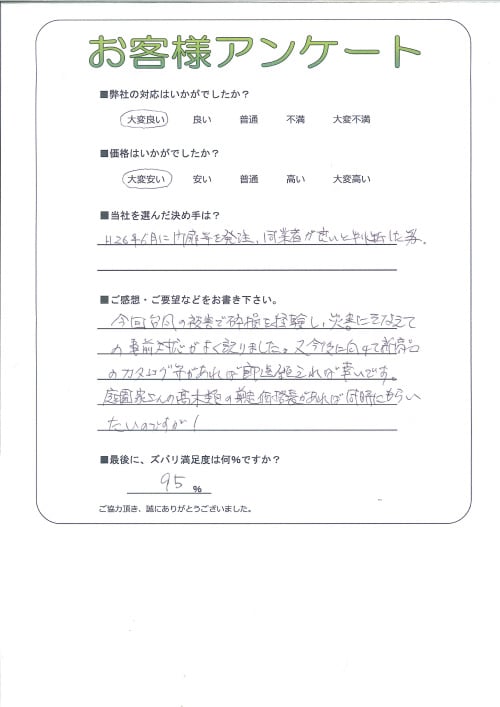 お客様アンケート
■弊社の対応はいかがでしたか？
大変良い 良い 普通 不満 大変不満
■価格はいかがでしたか？
大変安い 安い 普通 高い 大変高い
■当社を選んだ決め手は？
H26年6月に門扉等を発注、同業者が良いと判断した為。
■ご感想・ご要望などをお書き下さい。
今回台風の被害で破損を経験し、災害にそなえて
の事前対応がよく解りました。又今後に向けて新商品
のカタログ等があれば郵送頂ければ幸いです。
庭園 の高木 の 価格表があれば同時にもらい
たいのですが！
■最後に、ズバリ満足度は何％ですか？
95 %
ご協力頂き、誠にありがとうございました。